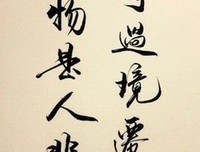 過境遷
物是人非